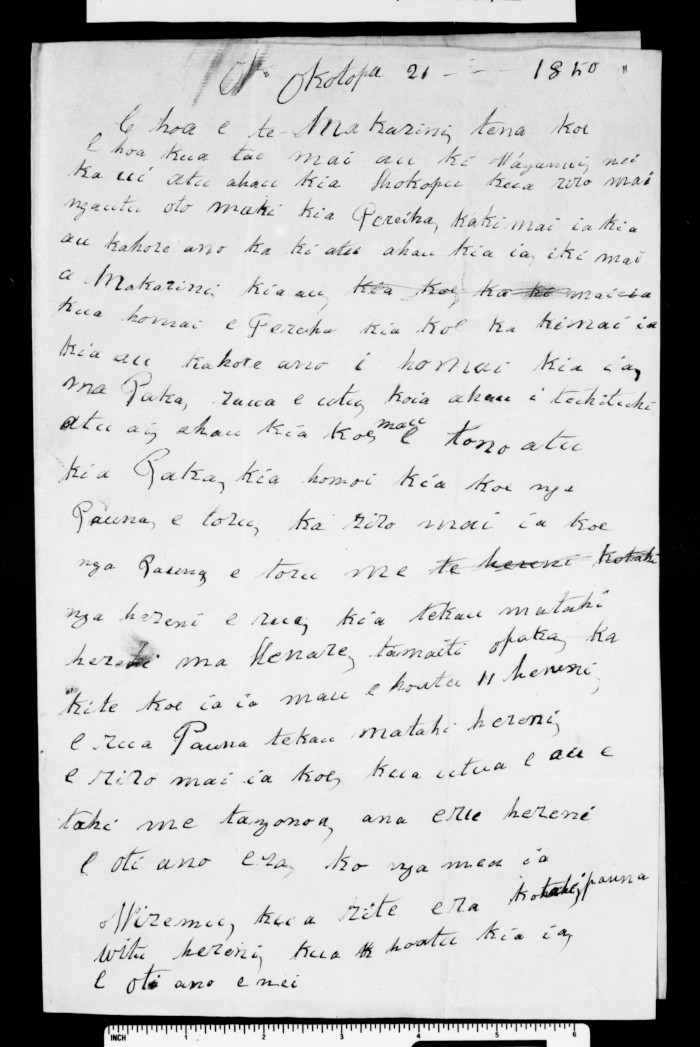 Okotopa 21 - - 1850 "
E hoa e te Makarini, tena koe
E hoa kua tae mai au ki Wáganui, nei
ka ui atu ahau kia Hokopu kua riro mai
ngautu oto maki kia Pereika, kaki mai ia kia
au kahore ano ka ki atu ahau kia ia, iki mai
a Makarini, kia au, kia koe, ka ki mai ia
kua homai e Pereika kia koe ka kimai ia
kia au kahore ano i homai kia ia,
ma Paka, raua e utu, koia ahau i tuhituhi
atu ai, ahau kia koe, mau e tono atu
kia Paka, kia homoi kia koe nga
Pauna, e toru, ka riro mai ia koe
nga Pauna, e toru me te hereni kotahi
nga hereni e rua, kia tekau matahi
hereni ma Henare, tamaiti opaka, ka
kite koe ia ia mau e hoatu 11 hereni,
e rua Pauna tekau matahi hereni,
e riro mai ia koe, kua utua e au e
tahi me tangonoa, ana erue hereni
E oti ano era, ko nga mea ia
Wiremu, kua rite era kotahi, pauna
witu hereni, kua hoatu kia ia,
E oti ano enei
INCH 1 2 3 4 5 6